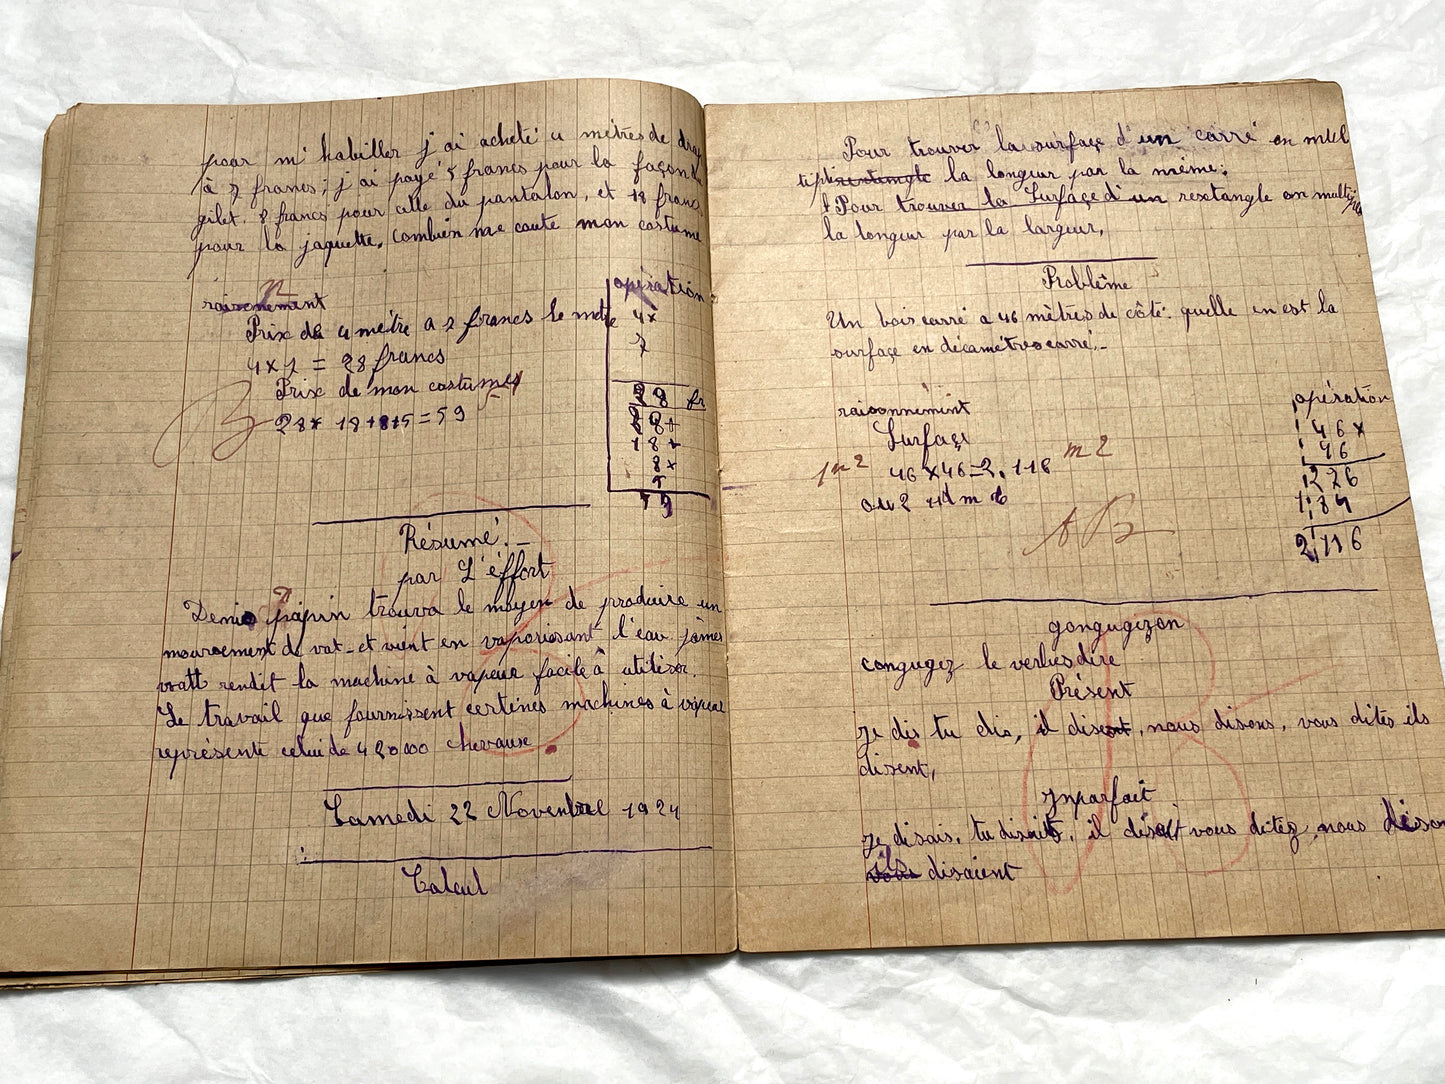 pour m'habiller j'ai acheté 4 mètres de drap
à 7 francs; j'ai payé 5 francs pour la façon du
gilet. 8 francs pour celle du pantalon, et 18 francs
pour la jaquette. Combien me coute mon costume
raisonement
n
Prix de 4 mètre a 7 francs le metre
4 x 7 = 28 francs
Prix de mon costume
28+ 18+8+5 = 59
B
opération
4x
7
28 fr
28+
18+
8x
5
59
Résumé._
par L'éffort
Denis papin trouva le moyen de produire un
P
mouvement de vat_et vient en vaporisant l'eau james
watt rendit la machine à vapeur facile à utiliser.
Le travail que fournissent certènes machines à vapeur
représente celui de 420000 chevaux
Samedi 22 Novembre 1924
Calcul
Pour trouver la surface d'un carré on mul
tipli rextangle la longeur par la même;
Pour trouver la Surface d'un rextangle on multiplie
la longeur par la largeur,
Problême
Un bois carré a 46 mètres de côté. quelle en est la
surface en décamètres carré._
raisonnement
Surface
1m2 46 x 46 = 2.116 m2
ou 2
AB
opération
46x
46
276
184
2116
gongugezon
congugez le verbes dire
Présent
je dis tu dis, il disent, nous disons, vous dites ils
disent,
Jnparfait
je disais, tu disaits, il disait vous ditez, nous dison
ils
vous disaient
B